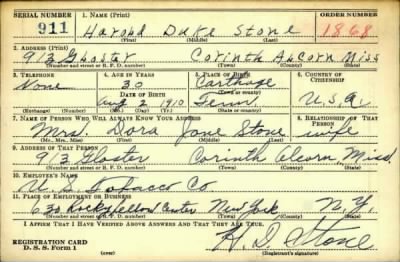 SERIAL NUMBER 1. NAME (Print) ORDER NUMBER
911 Harold Duke Stone 1868
(First) (Middle) (Last)
2. ADDRESS (Print)
913 Gloster Corinth Alcorn Miss
(Number and street or R. F. D. number) (Town) (County) (State)
3. TELEPHONE 4. AGE IN YEARS 5. PLACE OF BIRTH 6. COUNTRY OF CITIZENSHIP
None 30 Carthage
DATE OF BIRTH (Town or county)
Aug 2 1910 Tenn. U.S.A.
(Exchange) (Number) (Mo.) (Day) (Yr.) (State or country)
7. NAME OF PERSON WHO WILL ALWAYS KNOW YOUR ADDRESS 8. RELATIONSHIP OF THAT PERSON
Mrs. Dora Jane Stone wife
(Mr., Mrs., Miss) (First) (Middle) (Last)
9. ADDRESS OF THAT PERSON
913 Gloster Corinth Alcorn, Miss.
(Number and street or R. F. D. number) (Town) (County) (State)
10. EMPLOYER'S NAME
U. S. Tobacco Co
11. PLACE OF EMPLOYMENT OR BUSINESS
630 Rockyfellow Center New York N.Y.
(Number and street or R. F. D. number) (Town) (County) (State)
I AFFIRM THAT I HAVE VERIFIED ABOVE ANSWERS AND THAT THEY ARE TRUE.
REGISTRATION CARD
D. S. S. Form 1 H. D. Stone
(Registrant's signature)